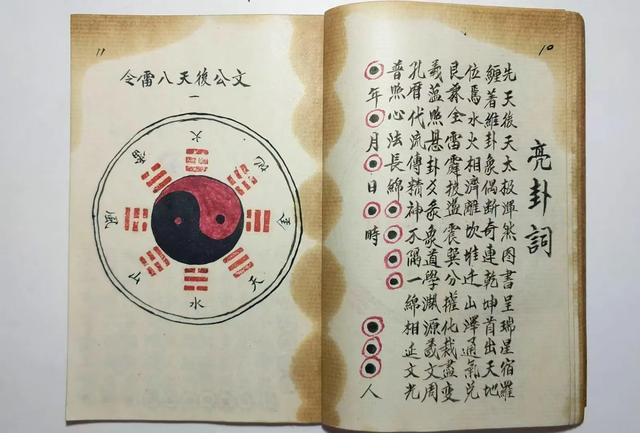 10
亮卦詞
先天後天太极渾然图書呈瑞星宿羅
纏著維卦象偶断奇連乾坤首出天地
位焉水火相濟離坎雖迁山澤通氣兑
艮雷盪震巽分權化裁盡變
羲蕴照悬卦爻彖象道學溯源羲文周
孔曆代流傳精神不隔一綿相延文光
普照心法長綿
年 月 日 時 人
11
文公後天八雷令
一
火
地
金
天
水
山
風
雷